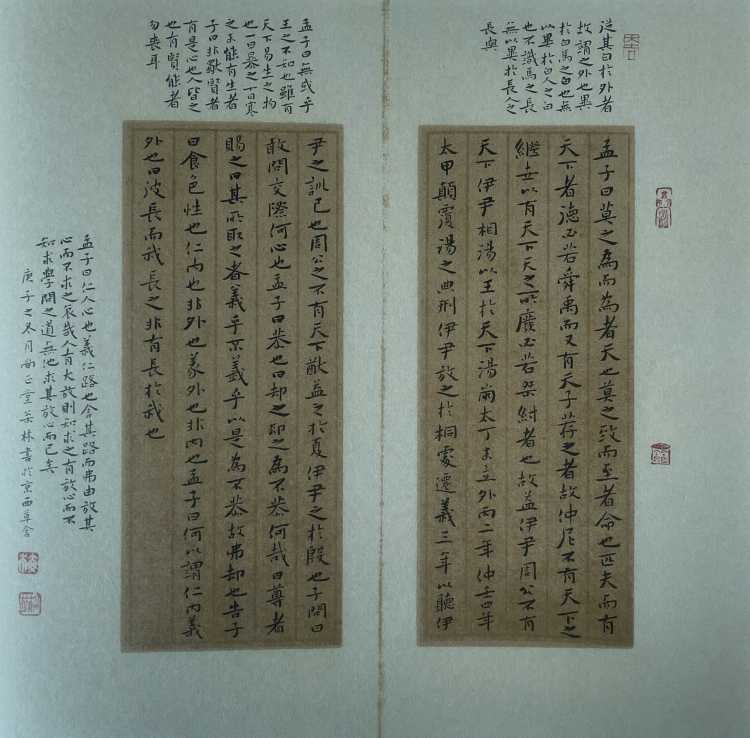 孟子曰莫之為而為者天也莫之致而至者命也匹夫而有
天下者德必若舜禹而又有天子荐之者故仲尼不有天下之
繼世以有天下天之所廢必若桀紂者也故益伊尹周公不有
天下伊尹相湯以王於天下湯崩太丁未立外丙二年仲壬四年
太甲顛覆湯之典刑伊尹放之於桐處遷義三年以聽伊
尹之訓己也周公之不有天下猷益之於夏伊尹之於殷也子問曰
敢問交際何心也孟子曰恭也曰却之却之為不恭何哉曰尊者
賜之曰其所取之者義乎不義乎以是為不恭故弗却也告子
曰食色性也仁內也非外也義外也非內也孟子曰何以謂仁內義
外也曰彼長而我長之非有長於我也
從其白於外者
故謂之外也異
於白馬之白也無
以異於白人之白
也不識馬之長
無以異於長人之
長與
孟子曰無或乎
王之不知也雖有
天下易生之物
也一日暴之十日寒
之未能有生者
子曰非獨賢者
有是心也人皆之
也有賢能者
勿喪耳
孟子曰仁人心也義仁路也舍其路而弗由放其
心而不求之哀哉人有犬放則知求之有放心而不
知求學問之道無他求其放心而已矣
庚子之冬月 林書於京西草舍